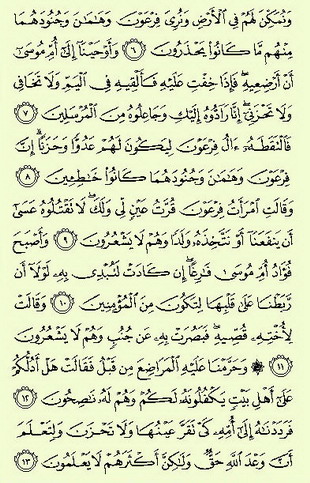 وَنُمَكِّنَ لَهُمْ فِي ٱلْأَرْضِ وَنُرِيَ فِرْعَوْنَ وَهَٰمَٰنَ وَجُنُودَهُمَا
مِنْهُم مَّا كَانُوا۟ يَحْذَرُونَ ٦ وَأَوْحَيْنَآ إِلَىٰٓ أُمِّ مُوسَىٰٓ
أَنْ أَرْضِعِيهِ ۖ فَإِذَا خِفْتِ عَلَيْهِ فَأَلْقِيهِ فِي ٱلْيَمِّ وَلَا تَخَافِي
وَلَا تَحْزَنِيٓ ۖ إِنَّا رَآدُّوهُ إِلَيْكِ وَجَاعِلُوهُ مِنَ ٱلْمُرْسَلِينَ ٧
فَٱلْتَقَطَهُۥٓ ءَالُ فِرْعَوْنَ لِيَكُونَ لَهُمْ عَدُوًّا وَحَزَنًا ۗ إِنَّ
فِرْعَوْنَ وَهَٰمَٰنَ وَجُنُودَهُمَا كَانُوا۟ خَٰطِـِٔينَ ٨
وَقَالَتِ ٱمْرَأَتُ فِرْعَوْنَ قُرَّتُ عَيْنٍ لِّي وَلَكَ ۖ لَا تَقْتُلُوهُ عَسَىٰٓ
أَن يَنفَعَنَآ أَوْ نَتَّخِذَهُۥ وَلَدًا وَهُمْ لَا يَشْعُرُونَ ٩ وَأَصْبَحَ
فُؤَادُ أُمِّ مُوسَىٰ فَٰرِغًا ۖ إِن كَادَتْ لَتُبْدِي بِهِۦ لَوْلَآ أَن
رَّبَطْنَا عَلَىٰ قَلْبِهَا لِتَكُونَ مِنَ ٱلْمُؤْمِنِينَ ١٠ وَقَالَتْ
لِأُخْتِهِۦ قُصِّيهِ ۖ فَبَصُرَتْ بِهِۦ عَن جُنُبٍ وَهُمْ لَا يَشْعُرُونَ
١١ ۞ وَحَرَّمْنَا عَلَيْهِ ٱلْمَرَاضِعَ مِن قَبْلُ فَقَالَتْ هَلْ أَدُلُّكُمْ
عَلَىٰٓ أَهْلِ بَيْتٍ يَكْفُلُونَهُۥ لَكُمْ وَهُمْ لَهُۥ نَٰصِحُونَ ١٢
فَرَدَدْنَٰهُ إِلَىٰٓ أُمِّهِۦ كَيْ تَقَرَّ عَيْنُهَا وَلَا تَحْزَنَ وَلِتَعْلَمَ
أَنَّ وَعْدَ ٱللَّهِ حَقٌّ وَلَٰكِنَّ أَكْثَرَهُمْ لَا يَعْلَمُونَ ١٣